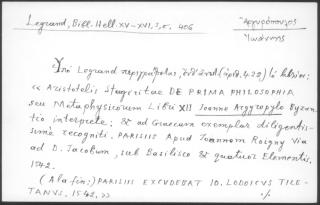 Legrand, Bibl. Hell. XV-XVI, 3, σ. 406
Ἀργυρόπουλος
Ἰωάννης
Ὑπὸ Legrand περιγράφεται,
« Aristotelis Stageritae DE PRIMA PHILOSOPHIA
seu Metaphysicorum Libri XII Joanne Argyropylo Byzan
tio interprete; & ad Graecum exemplar diligentis-
sime recogniti. PARISIIS Apud Joannem Roigny Via
ad D. Jacobum, sub Basilisco & quatuor Elementis.
1542.
(A la fin:) PARISIIS EXCUDEBAT IO. LODOICUS TILE-
TANUS. 1542. »